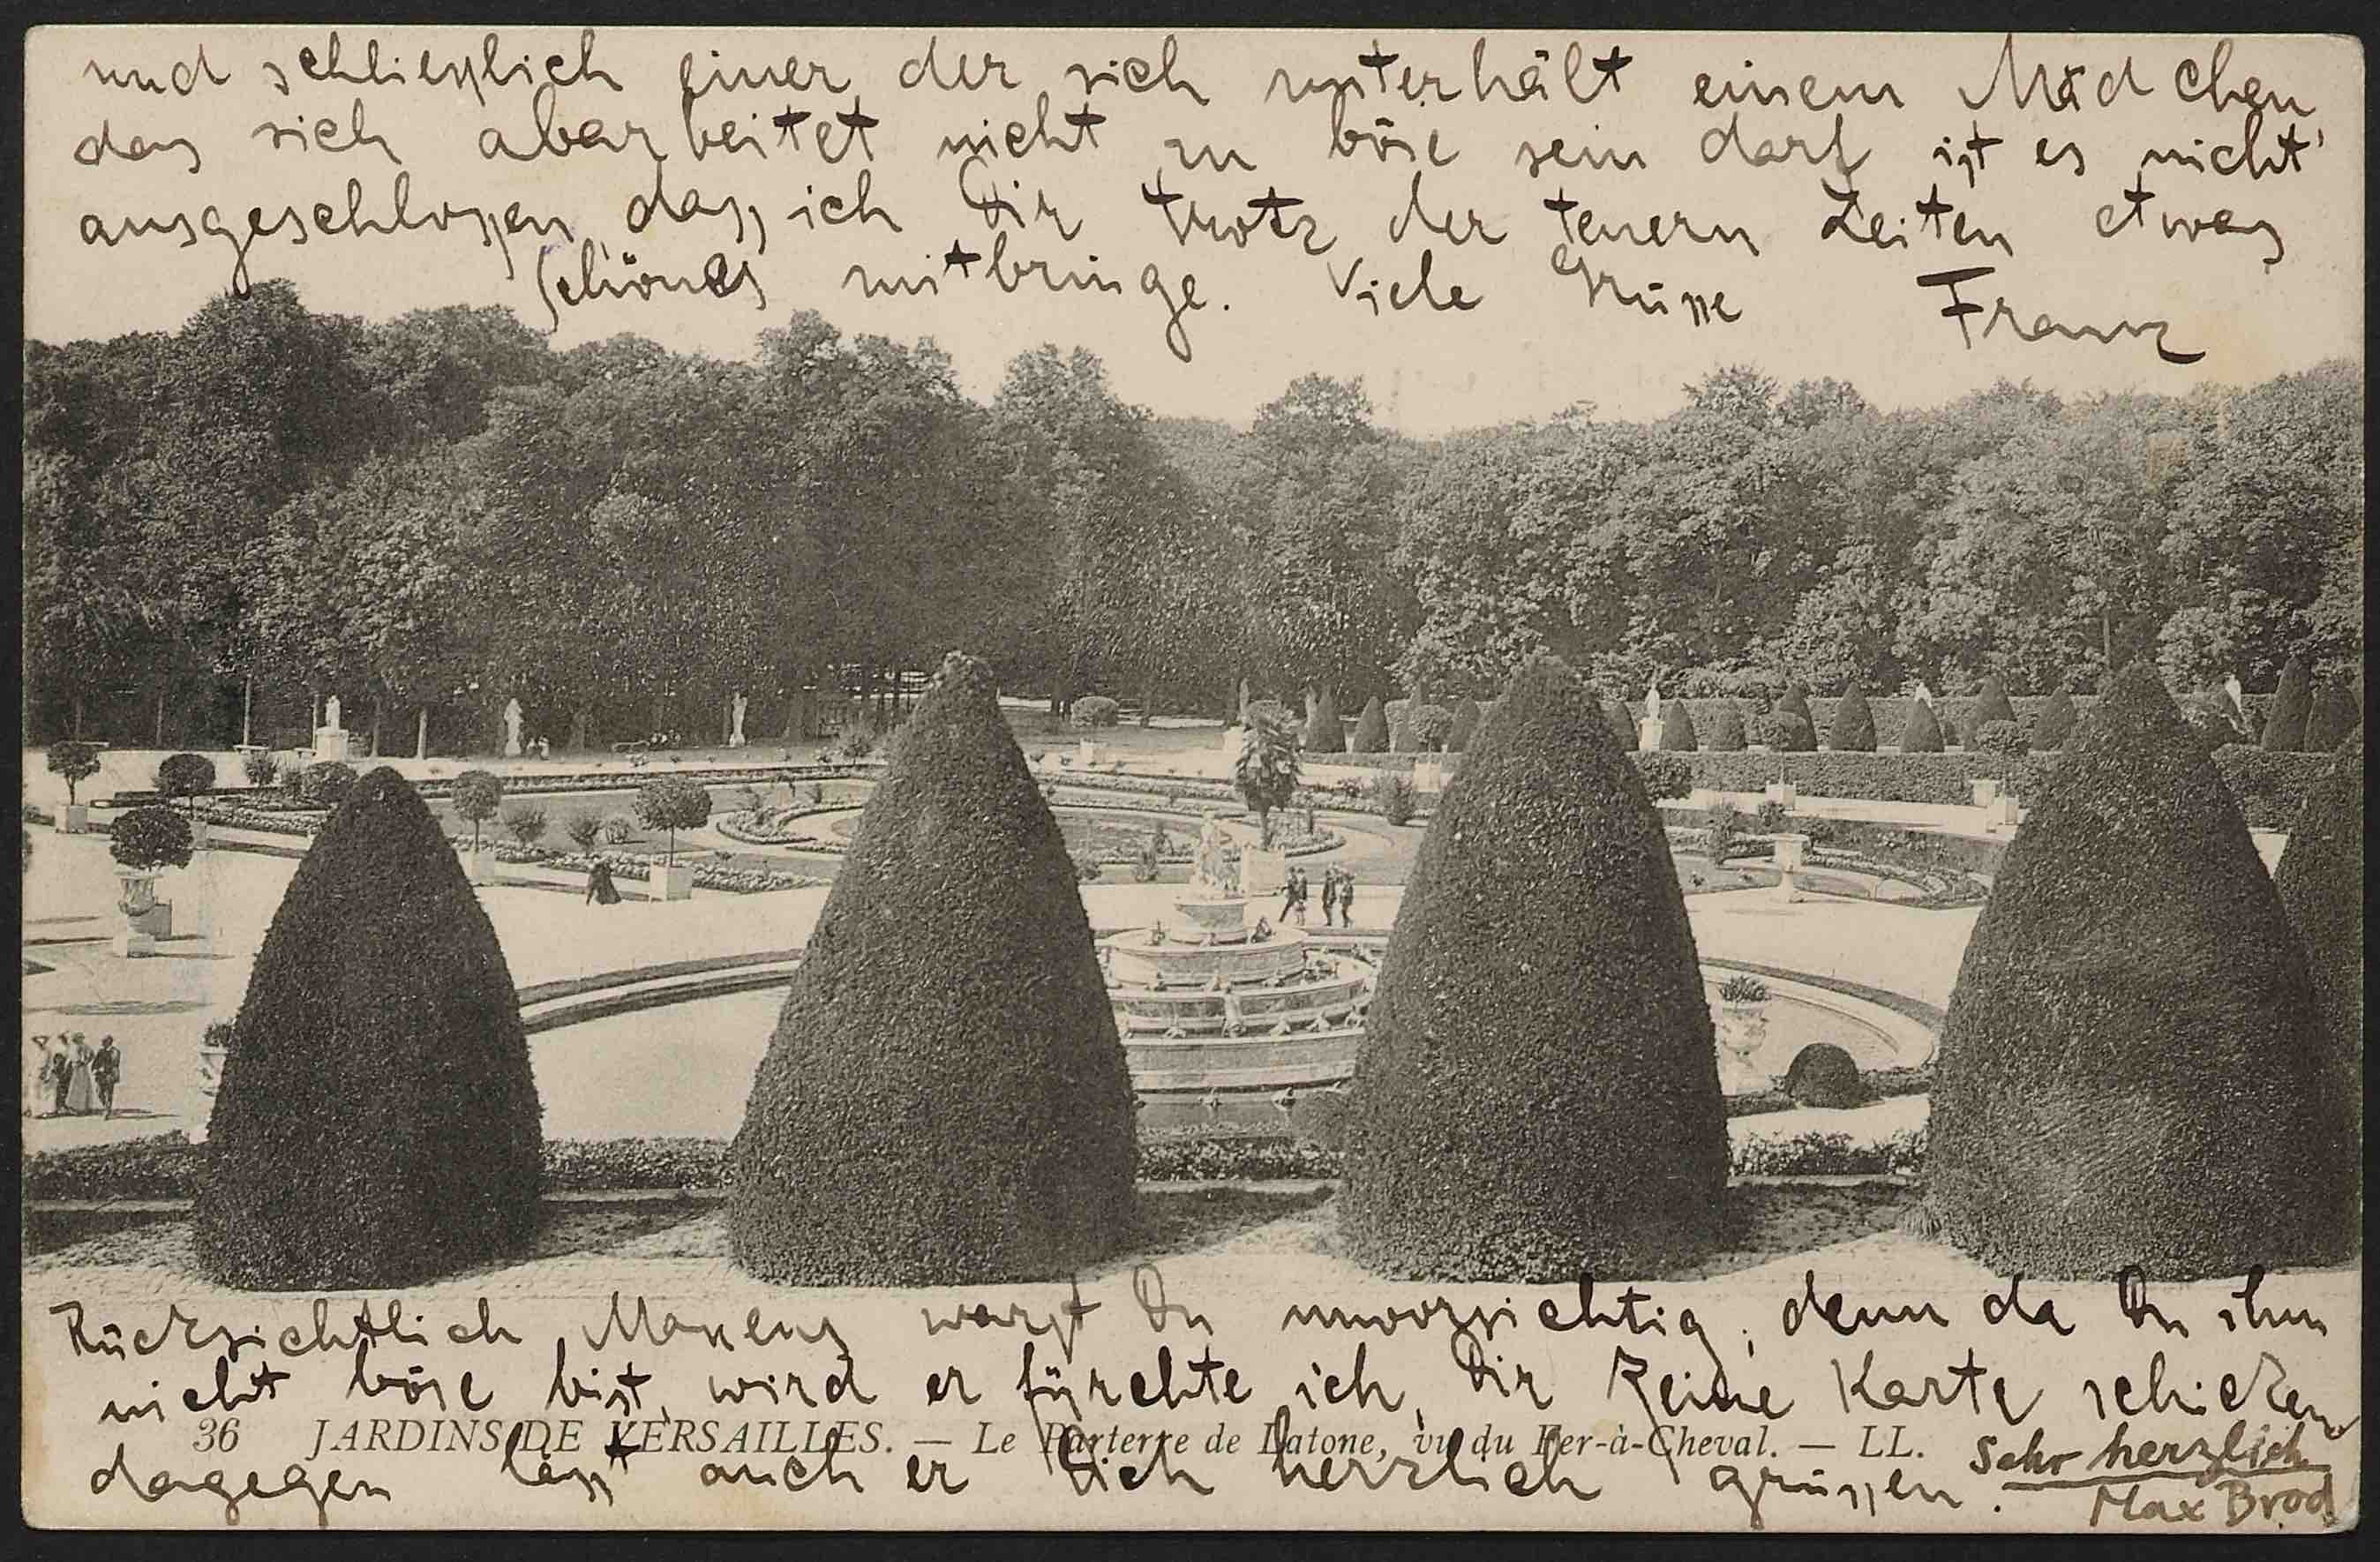 und schliesslich einer der sich unterhält einem Mädchen,
das sich abarbeitet nicht zu böse sein darf ist es nicht
ausgeschlossen, dass ich Dir trotz der teuern Zeiten etwas
schönes mitbringe. Viele Grüsse Franz
Rücksichtlich Maxens warst Du unvorsichtig, denn da Du ihm
nicht böse bist, wird er fürchte ich, Dir keine Karte schicken
36 JARDINS DE VERSAILLES. — Le Parterre de Latone, vu du Fer-à-Cheval. — LL.
dagegen lässt auch er Dich herzlich grüssen.
Sehr herzlich
Max Brod